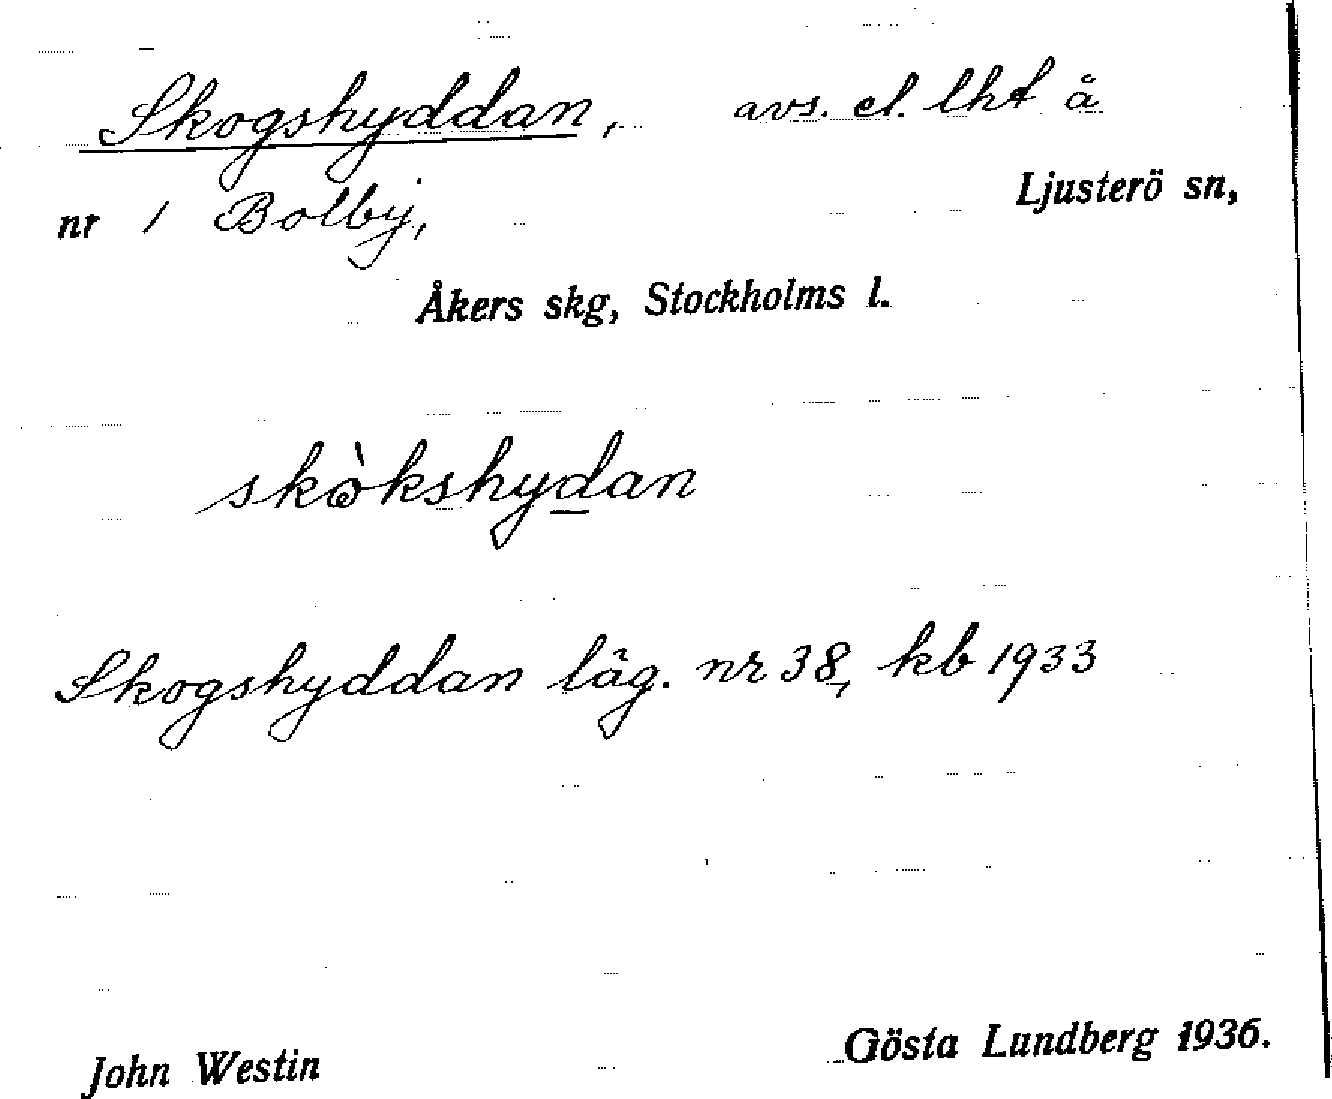 Skogshyddan, avs. el. lht å
Ljusterö sn,
nr 1 Bolby,
Åkers skg, Stockholms l.
skòkshydan
Skogshyddan läg. nr 38, kb 1933
John Westin Gösta Lundberg 1936.